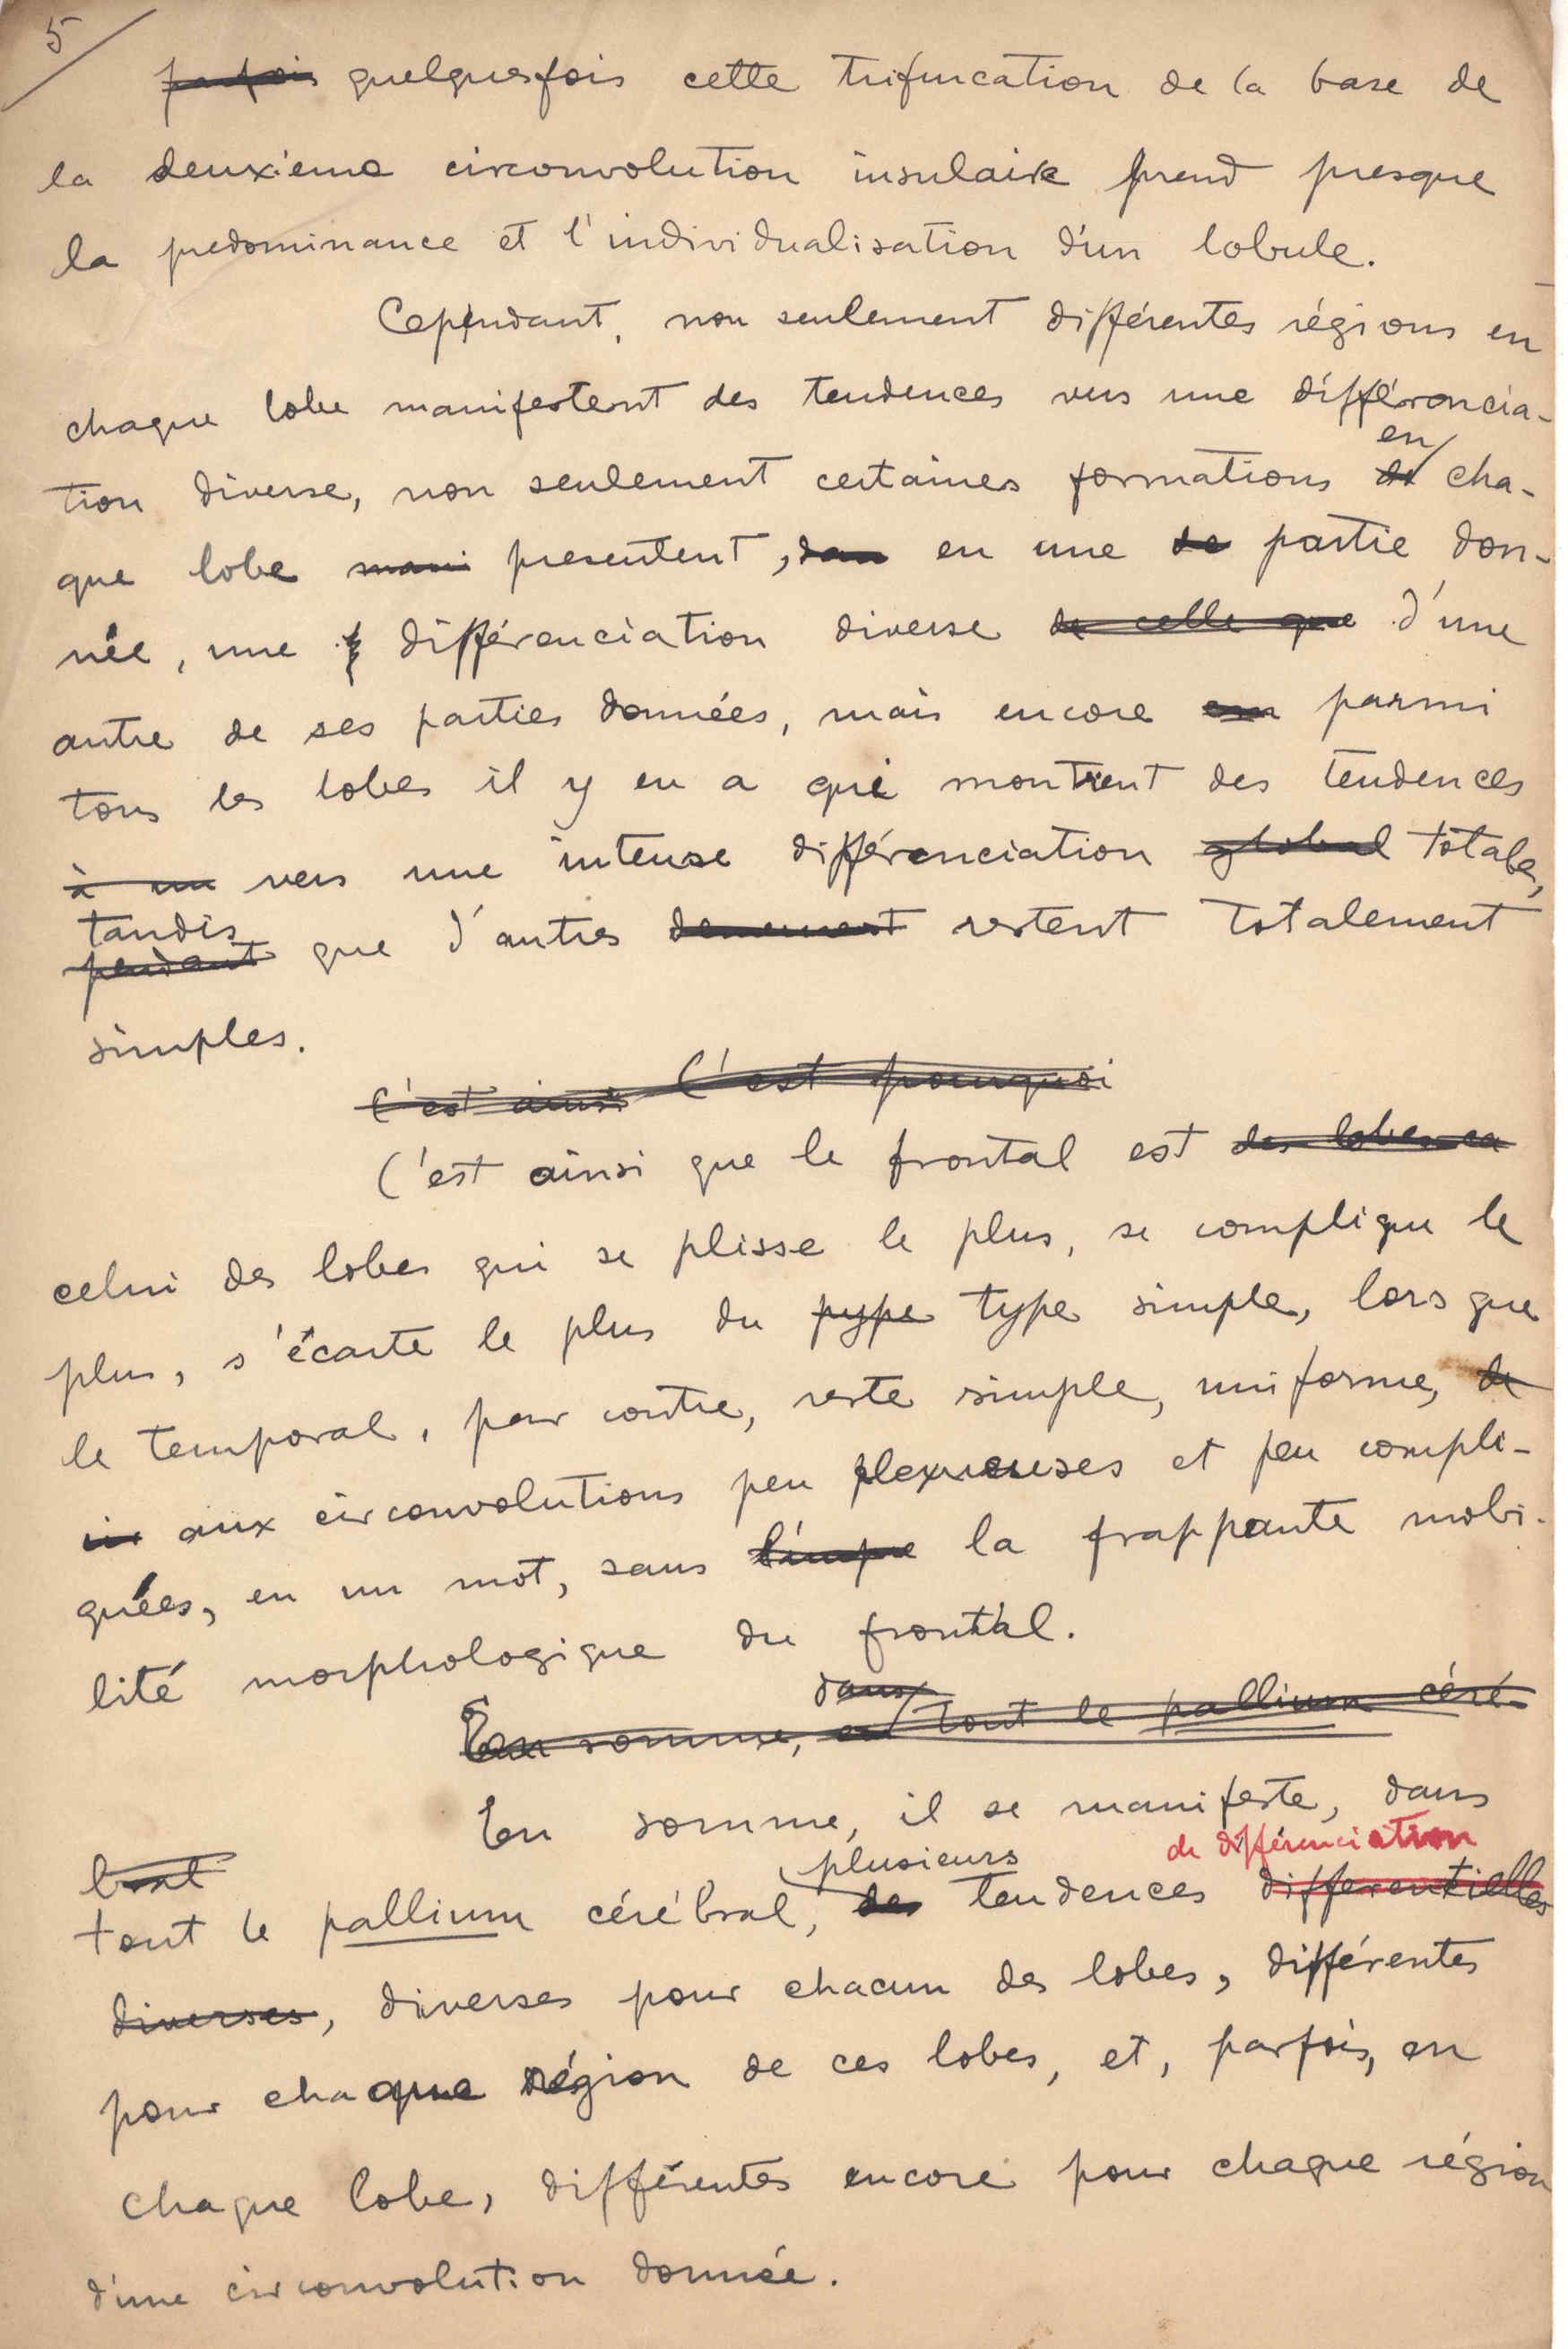 5
parfois quelquesfois cette trifurcation de la base de
la deuxième circonvolution insulaire prend presque
la predominance et l'individualisation d'un lobule.
Cependant, non seulement différentes régions en
chaque lobe manifestent des tendences vers une différencia-
en
tion diverse, non seulement certaines formations de cha-
que lobe mani presentent, dan en une de partie don-
née, une différenciation diverse de celle que d'une
autre de ses parties données, mais encore en parmi
tous les lobes il y en a qui montrent des tendences
à un vers une intense différenciation global totale,
tandis
pendant que d'autres demeurent restent totalement
simples.
C'est ainsi C'est pourquoi
C'est ainsi que le frontal est des lobes ce
celui des lobes qui se plisse le plus, se complique le
plus, s'écarte le plus du pype type simple, lorsque
le temporal, par contre, reste simple, uniforme, de
cir aux circonvolutions peu plexueuses et peu compli-
quées, en un mot, sans l'impr la frappante mobi-
lité morphologique du frontal.
dans
En somme, en tout le pallium céré-
En somme, il se manifeste, dans
brat plusieurs de différenciation
tout le pallium cérébral, des tendences differentielles
diverses, diverses pour chacun des lobes, différentes
pour chaque région de ces lobes, et, parfois, en
chaque lobe, différentes encore pour chaque région
d'une circonvolution donnée.